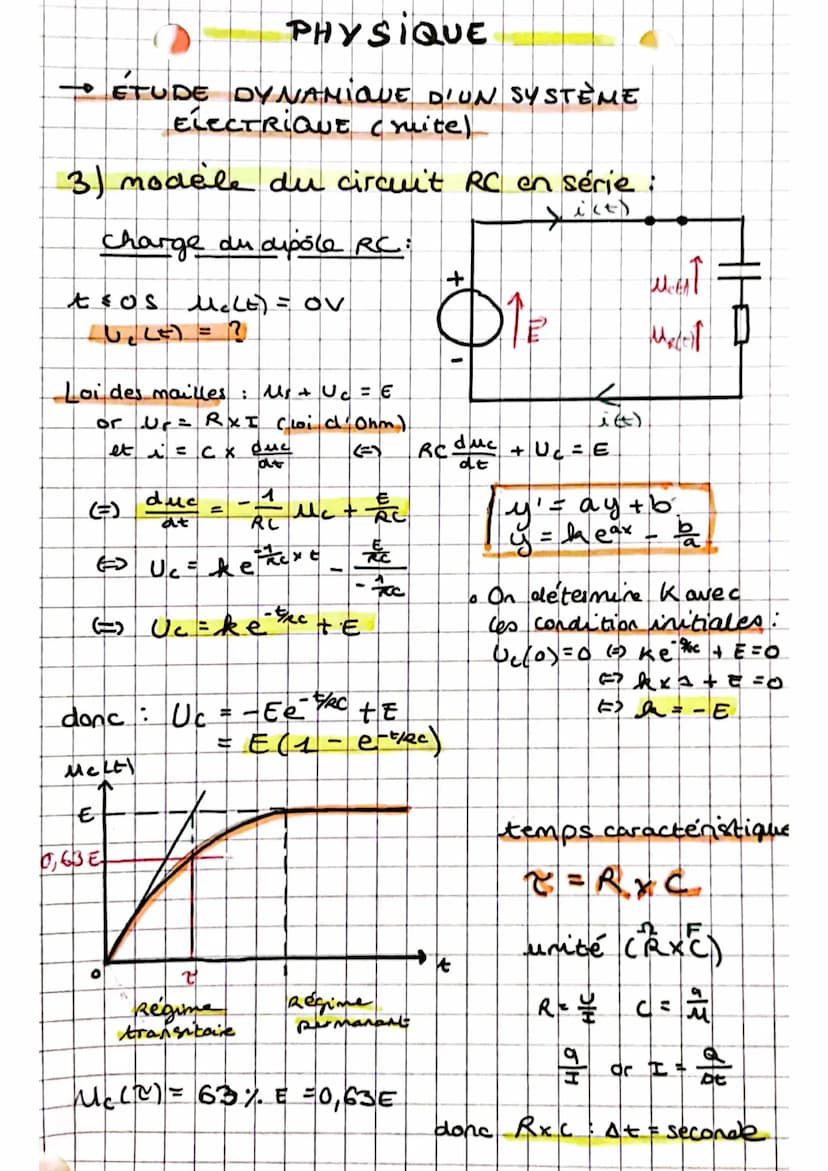 PHYSIQUE
→ ÉTUDE DYNAMIQUE D'UN SYSTÈME
ÉLECTRIQUE (suite)
3) modèle du circuit RC en série :
i(t)
charge du dipôle RC :
+
E
-
uc(t)
ur(t)
i(t)
t ≤ 0 s uc(t) = 0V
Uc(t) = ?
Loi des mailles : ur + Uc = E
or Ur = R×I (loi d'Ohm)
et i = C × duc/dt (=) RC duc/dt + Uc = E
(=) duc/dt = - 1/RC uc + E/RC
⇔ Uc = ke^(-1/RC × t) - (E/RC)/(-1/RC)
(=) Uc = ke^(-t/RC) + E
y' = ay + b
y = ke^(ax) - b/a
• On détermine K avec
les condition initiales :
Uc(0)=0 (=) Ke^(-0/RC) + E = 0
⇔ k×1 + E = 0
⇔ k = -E
donc : Uc = -Ee^(-t/RC) + E
= E(1 - e^(-t/RC))
uc(t)
E
0,63E
0
τ
t
Régime
transitoire
Régime
permanant
uc(τ) = 63% E = 0,63E
temps caractéristique
τ = R × C
unité (R×C)
Ω F
R = U/I C = q/u
q/I or I = Q/Δt
donc R×C : Δt = seconde